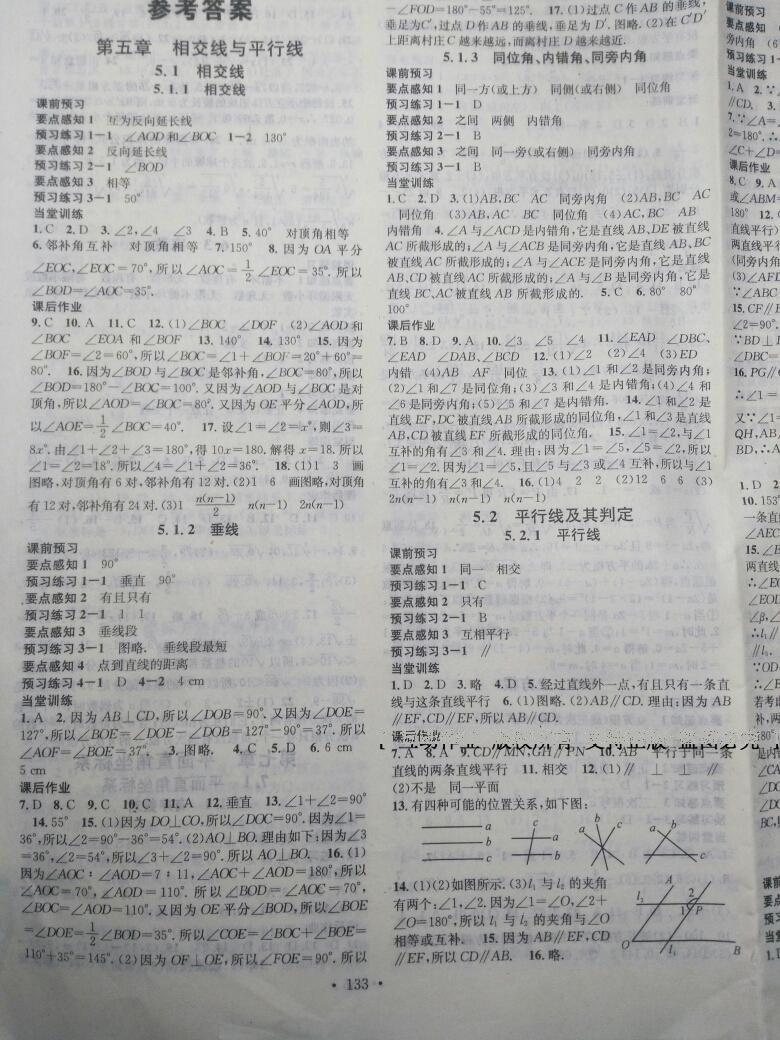 参考答案
第五章 相交线与平行线
5.1 相交线
5.1.1 相交线
课前预习
要点感知1 互为反向延长线
预习练习1-1 ∠AOD和∠BOC 1-2 130°
要点感知2 反向延长线
预习练习2-1 ∠BOD
要点感知3 相等
预习练习3-1 50°
当堂训练
1.C 2.D 3.∠2,∠4 ∠3 4.B 5.40° 对顶角相等
6.邻补角互补 对顶角相等 7.150° 8.因为OA平分
∠EOC,∠EOC=70°,所以∠AOC=1/2∠EOC=35°.所以
∠BOD=∠AOC=35°.
课后作业
9.C 10.A 11.C 12.(1)∠BOC ∠DOF (2)∠AOD和
∠BOC ∠EOA和∠BOF 13.140° 14.130° 15.因为
∠BOF=∠2=60°,所以∠BOC=∠1+∠BOF=20°+60°=
80°. 16.因为∠BOD与∠BOC是邻补角,∠BOC=80°,所以
∠BOD=180°-∠BOC=100°.又因为∠AOD与∠BOC是对
顶角,所以∠AOD=∠BOC=80°.又因为OE平分∠AOD,所
以∠AOE=1/2∠BOC=40°. 17.设∠1=∠2=x°,则∠3=
8x°.由∠1+∠2+∠3=180°,得10x=180.解得x=18.所以
∠1=∠2=18°.所以∠4=∠1+∠2=36°. 18.(1)1 3 画
图略,对顶角有6对,邻补角有12对.(2)1 6 画图略,对顶角
有12对,邻补角有24对.(3)1 n(n-1)/2 n(n-1) 2n(n-1)
5.1.2 垂线
课前预习
要点感知1 90°
预习练习1-1 垂直 90°
要点感知2 有且只有
预习练习2-1 1 1
要点感知3 垂线段
预习练习3-1 图略. 垂线段最短
要点感知4 点到直线的距离
预习练习4-1 D 4-2 4 cm
当堂训练
1.A 2.因为AB⊥CD,所以∠DOB=90°.又因为∠DOE=
127°,所以∠BOE=∠DOE-∠DOB=127°-90°=37°.所以
∠AOF=∠BOE=37°. 3.图略. 4.C 5.D 6.6 cm
5 cm
课后作业
7.D 8.C 9.C 10.C 11.A 12.垂直 13.∠1+∠2=90°
14.55° 15.(1)因为DO⊥CO,所以∠DOC=90°.因为∠1=
36°,所以∠2=90°-36°=54°.(2)AO⊥BO.理由如下:因为∠3
=36°,∠2=54°,所以∠3+∠2=90°.所以AO⊥BO. 16.(1)
因为∠AOC∶∠AOD=7∶11,∠AOC+∠AOD=180°,所以
∠AOC=70°,∠AOD=110°.所以∠BOD=∠AOC=70°,
∠BOC=∠AOD=110°.又因为OE平分∠BOD,所以∠BOE
=∠DOE=1/2∠BOD=35°.所以∠COE=∠BOC+∠BOE=
110°+35°=145°.(2)因为OF⊥OE,所以∠FOE=90°.所以
-∠FOD=180°-55°=125°. 17.(1)过点C作AB的垂线,
垂足为C′,过点D作AB的垂线,垂足为D′.图略.(2)在C′D′
上距离村庄C越来越远,而离村庄D越来越近.
5.1.3 同位角、内错角、同旁内角
课前预习
要点感知1 同一方(或上方) 同侧(或右侧) 同位角
预习练习1-1 D
要点感知2 之间 两侧 内错角
预习练习2-1 B
要点感知3 之间 同一旁(或右侧) 同旁内角
预习练习3-1 B
当堂训练
1.C 2.D 3.(1)AB,BC AC 同旁内角 (2)AB,BC AC
同位角 (3)AB,AC BC 同位角 (4)AC,BC AB
内错角 4.∠A与∠ACD是内错角,它是直线AB,DE被直线
AC所截形成的;∠A与∠ACB是同旁内角,它是直线AB,BC
被直线AC所截形成的;∠A与∠ACE是同旁内角,它是直线
AB,CD被直线AC所截形成的;∠A与∠B是同旁内角,它是
直线BC,AC被直线AB所截形成的. 5.C 6.80° 80°
100°
课后作业
7.B 8.D 9.A 10.∠3 ∠5 ∠4 11.∠EAD ∠DBC、
∠EAD ∠DAB、∠BCD 12.(1)∠2 (2)∠4 (3)ED
内错 (4)AB AF 同位 13.(1)∠1和∠2是同旁内角;
(2)∠1和∠7是同位角;(3)∠3和∠4是内错角;(4)∠4和
∠6是同旁内角;(5)∠5和∠7是内错角. 14.∠1和∠2是
直线EF,DC被直线AB所截形成的同位角,∠1和∠3是直线
AB,CD被直线EF所截形成的同位角. 15.∠1=∠2,与∠1
互补的角有∠3和∠4.理由:因为∠1=∠5,∠5=∠2,所以
∠1=∠2.因为∠1=∠5,且∠5与∠3或∠4互补,所以与∠1
互补的角有∠3和∠4. 16.(1)4 2 2 (2)12 6 6 (3)
2n(n-1) n(n-1) n(n-1)
5.2 平行线及其判定
5.2.1 平行线
课前预习
要点感知1 同一 相交
预习练习1-1 C
要点感知2 只有
预习练习2-1 B
要点感知3 互相平行
预习练习3-1 ∥
当堂训练
1.D 2.D 3.略 4.D 5.经过直线外一点,有且只有一条直
线与这条直线平行 6.(1)图略.(2)AB∥CD.理由:因为AB
∥EF,CD∥EF,所以AB∥CD.
课后作业
7.A 8.A 9.CD∥MN,GH∥PN 10.AB 平行于同一条
直线的两条直线平行 11.相交 12.(1)∥ ⊥ ⊥ ∥
(2)不是 同一平面
13.有四种可能的位置关系,如下图:
14.(1)(2)如图所示.(3)l₁与l₂的夹角
有两个:∠1,∠2.因为∠1=∠O,∠2+
∠O=180°,所以l₁与l₂的夹角与∠O
相等或互补. 15.因为AB∥EF,CD
∥EF,所以CD∥AB. 16.略.
• 133 •